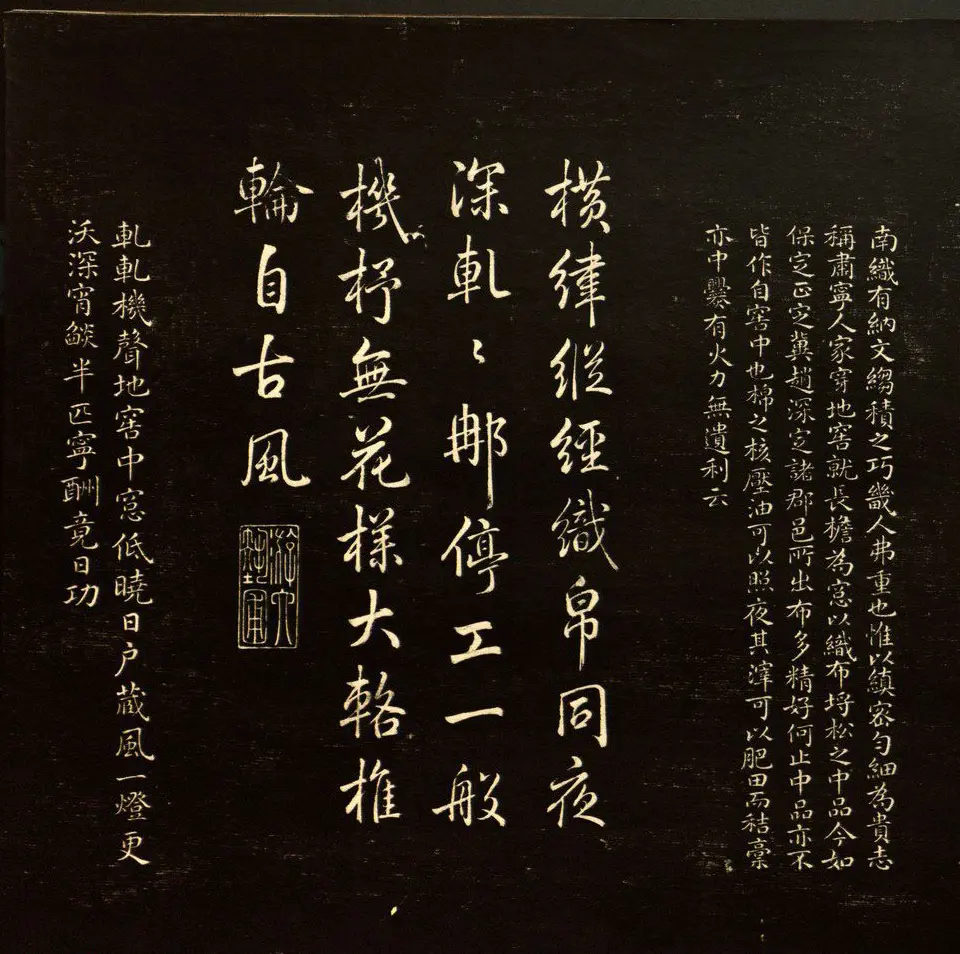 南織有納文縐積之巧畿人弗重也惟以縝密勻細為貴志
稱肅寧人家穿地窖就長檐為窓以織布埒松之中品今如
保定正定冀趙深定諸郡邑所出布多精好何止中品亦不
皆作自窖中也棉之核壓油可以照夜其滓可以肥田而秸稾
亦中爨有火力無遺利云
橫緯縱經織帛同夜
深軋〻那停工一般
機杼無花樣大輅椎
輪自古風
游六
藝圃
軋軋機聲地窖中窓低曉日戶蔵風一燈更
沃深宵燄半匹寧酬竟日功